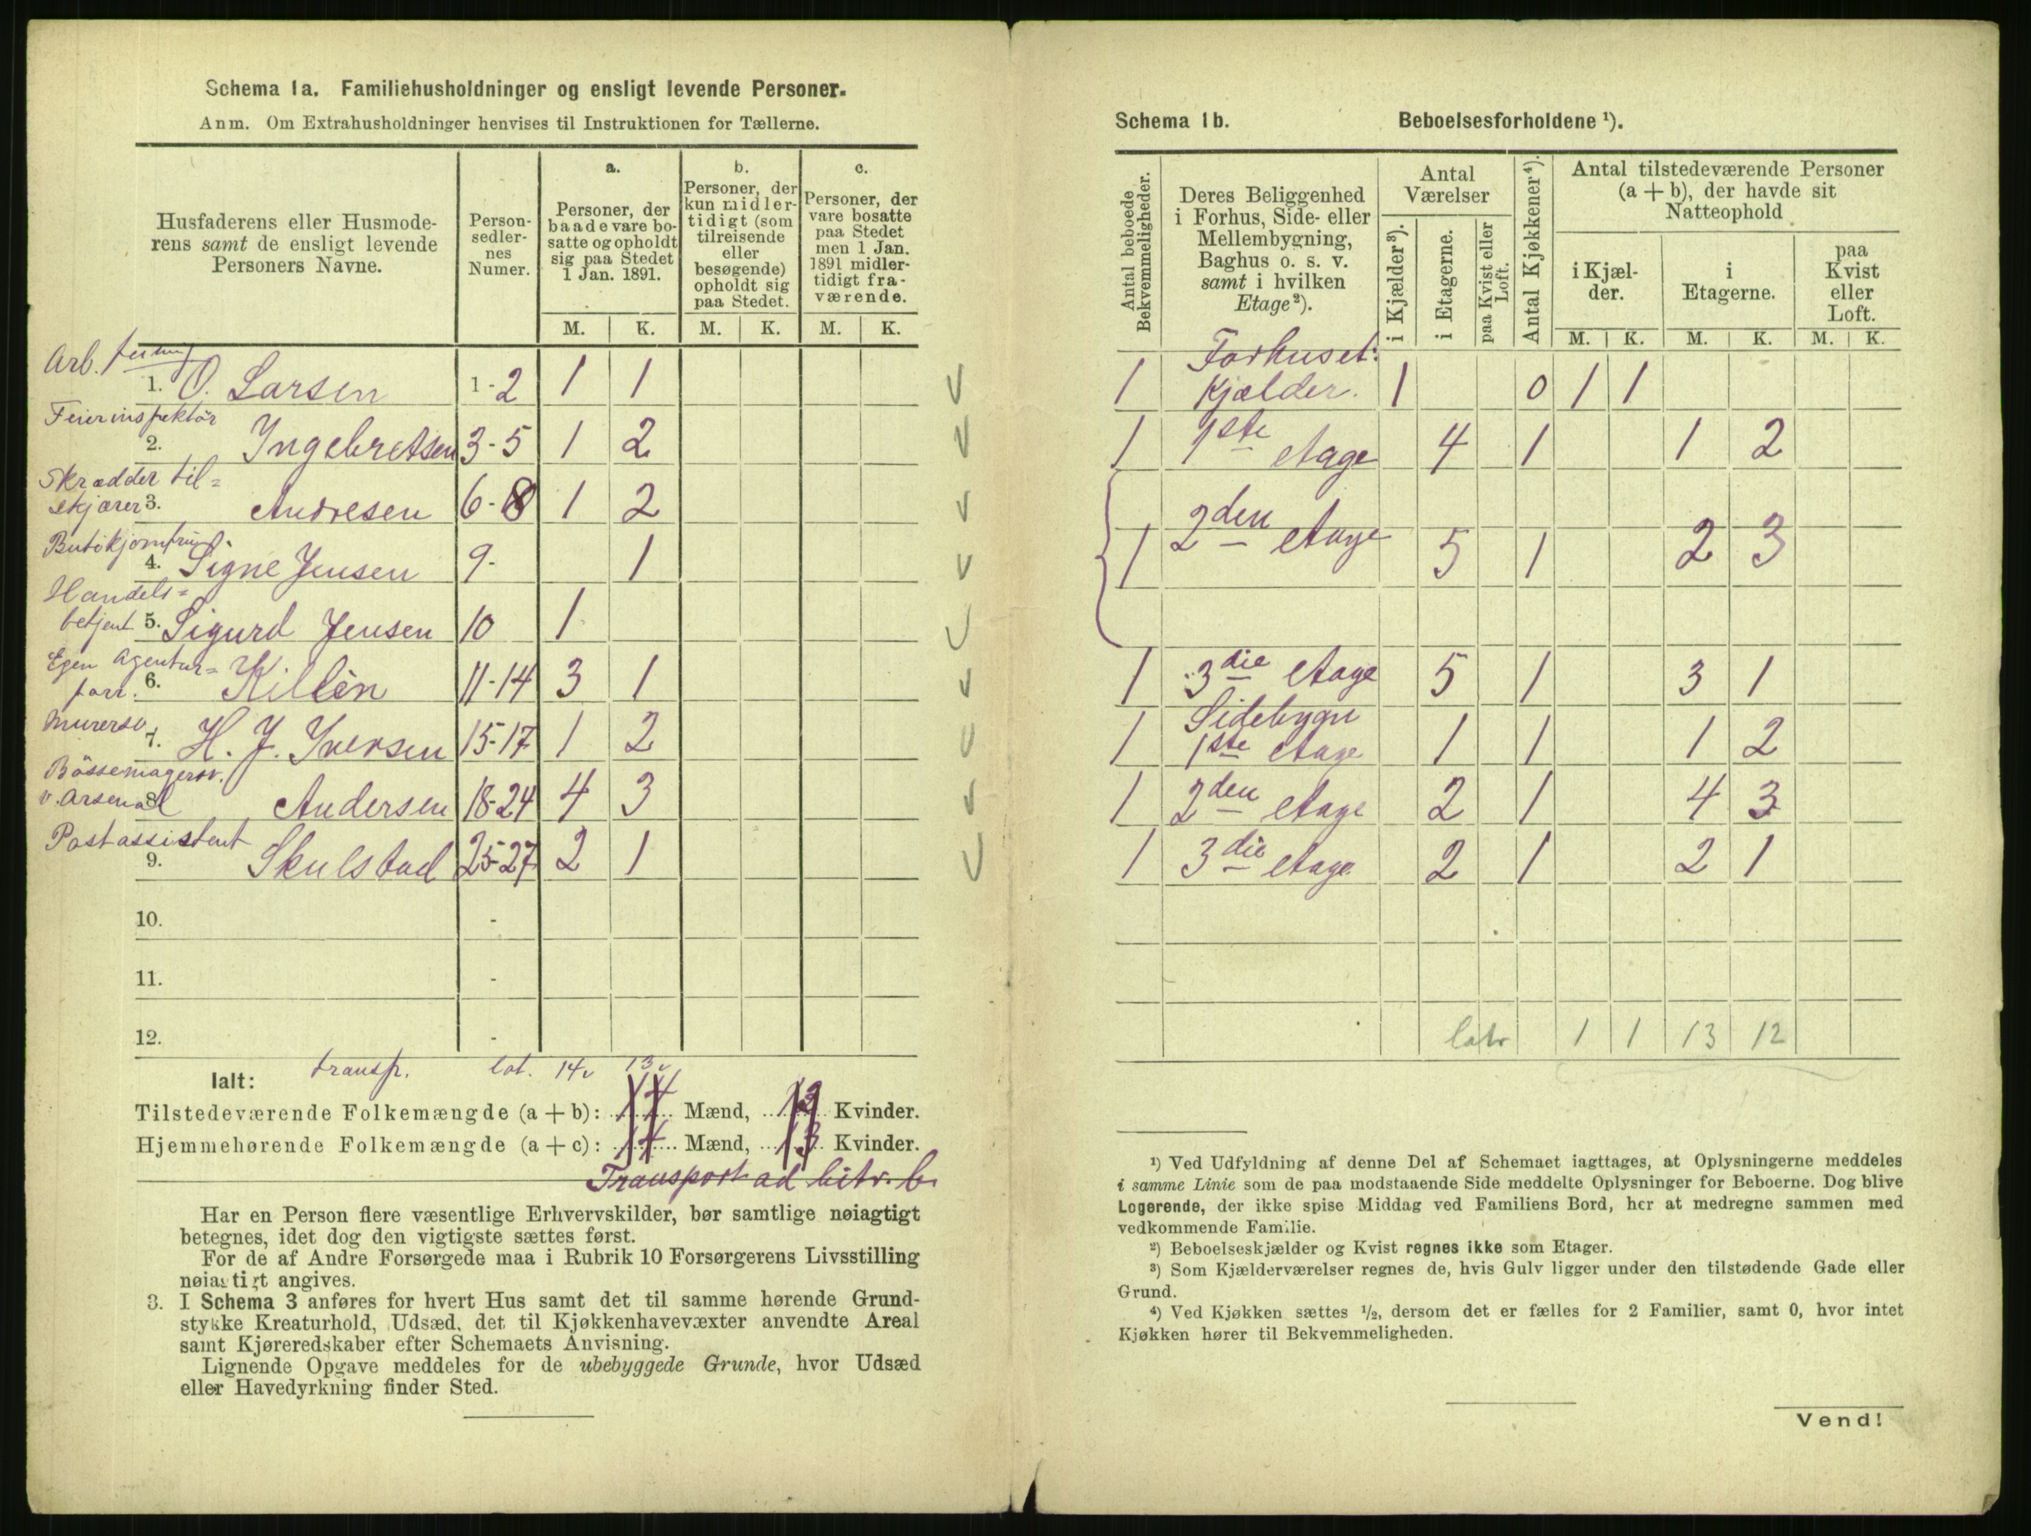 Schema 1a. Familiehusholdninger og ensligt levende Personer.
Anm. Om Extrahusholdninger henvises til Instruktionen for Tællerne.
Husfaderens eller Husmode-
rens samt de ensligt levende
Personers Navne.
Person-
sedler-
nes
Numer.
a.
Personer, der
baade vare bo-
satte og opholdt
sig paa Stedet
1 Jan. 1891.
b.
Personer, der
kun midler-
tidigt (som
tilreisende
eller
besøgende)
opholdt sig
paa Stedet.
c.
Personer, der
vare bosatte
paa Stedet
men 1 Jan.
1891 midler-
tidigt fra-
værende.
M. K. M. K. M. K.
Arb.
1. O. Larsen 1-2 1 1
Feierinspektör
2. Ingebretsen 3-5 1 2
Skrædder til=
skjærer 3. Andresen 6-8 1 2
Butikjomfru
4. Signe Jensen 9- 1
Handels=
betjent 5. Sigurd Jensen 10 1
Egen Agentur=
forr. 6. Killén 11-14 3 1
Murersv.
7. H. J. Iversen 15-17 1 2
Bössemagersv.
v. Arsenal 8. Andersen 18-24 4 3
Postassistent
9. Skulstad 25-27 2 1
10. -
11. -
12. -
Ialt: transp. lat. 14v 13v
Tilstedeværende Folkemængde (a + b): 14 Mænd, 13 Kvinder.
Hjemmehørende Folkemængde (a + c): 14 Mænd, 13 Kvinder.
Transport ad litr. b.
Har en Person flere væsentlige Erhvervskilder, bør samtlige nøiagtigt
betegnes, idet dog den vigtigste sættes først.
For de af Andre Forsørgede maa i Rubrik 10 Forsørgerens Livsstilling
nøiagtigt angives.
3. I Schema 3 anføres for hvert Hus samt det til samme hørende Grund-
stykke Kreaturhold, Udsæd, det til Kjøkkenhavevæxter anvendte Areal
samt Kjøreredskaber efter Schemaets Anvisning.
Lignende Opgave meddeles for de ubebyggede Grunde, hvor Udsæd
eller Havedyrkning finder Sted.
Schema 1b. Beboelsesforholdene ¹).
Antal beboede
Bekvemmeligheder.
Deres Beliggenhed
i Forhus, Side- eller
Mellembygning,
Baghus o. s. v.
samt i hvilken
Etage²).
Antal
Værelser
i Kjælder³).
i Etagerne.
paa Kvist eller
Loft.
Antal Kjøkkener⁴).
Antal tilstedeværende Personer
(a + b), der havde sit
Natteophold
i Kjæl-
der.
i
Etagerne.
paa
Kvist
eller
Loft.
M. K. M. K. M. K.
Forhuset:
1 Kjælder. 1 0 1 1
1 1ste etage 4 1 1 2
1 2den etage 5 1 2 3
1 3die etage 5 1 3 1
Sidebygn
1 1ste etage 1 1 1 2
1 2den etage 2 1 4 3
1 3die etage 2 1 2 1
latr 1 1 13 12
¹) Ved Udfyldning af denne Del af Schemaet iagttages, at Oplysningerne meddeles
i samme Linie som de paa modstaaende Side meddelte Oplysninger for Beboerne. Dog blive
Logerende, der ikke spise Middag ved Familiens Bord, her at medregne sammen med
vedkommende Familie.
²) Beboelseskjælder og Kvist regnes ikke som Etager.
³) Som Kjælderværelser regnes de, hvis Gulv ligger under den tilstødende Gade eller
Grund.
⁴) Ved Kjøkken sættes ½, dersom det er fælles for 2 Familier, samt 0, hvor intet
Kjøkken hører til Bekvemmeligheden.
Vend!